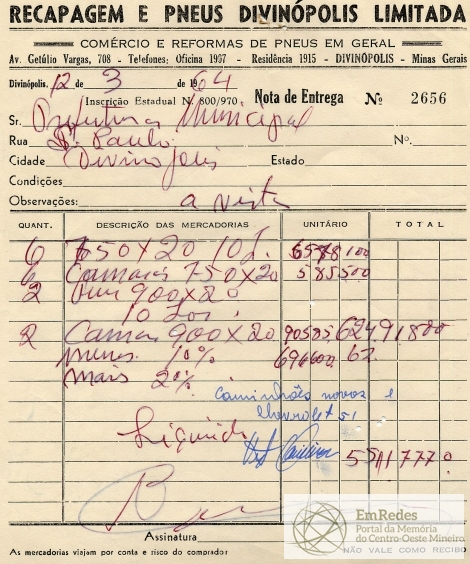 RECAPAGEM E PNEUS DIVINÓPOLIS LIMITADA
COMÉRCIO E REFORMAS DE PNEUS EM GERAL
Av. Getúlio Vargas, 708 - Telefones: Oficina 1907 - Residência 1915 - DIVINÓPOLIS - Minas Gerais
Divinópolis, 12 de 3 de 1964
Inscrição Estadual N. 800/970 Nota de Entrega Nº 2656
Sr. Prefeitura Municipal
Rua S. Paulo Nº.
Cidade Divinopolis Estado
Condições
Observações: a vista
QUANT. DESCRIÇÃO DAS MERCADORIAS UNITÁRIO TOTAL
6 750 x 20 10 L.
6 Camaras 750 x 20 585500
2 900 x 20
10 Lonas
2 Camaras 900 x 20
menos 10%
mais 2%
Caminhões novos e
Chevrolet 51
Liquido
Assinatura
As mercadorias viajam por conta e risco do comprador
NÃO VALE COMO RECIBO
EmRedes
Portal da Memória
do Centro-Oeste Mineiro